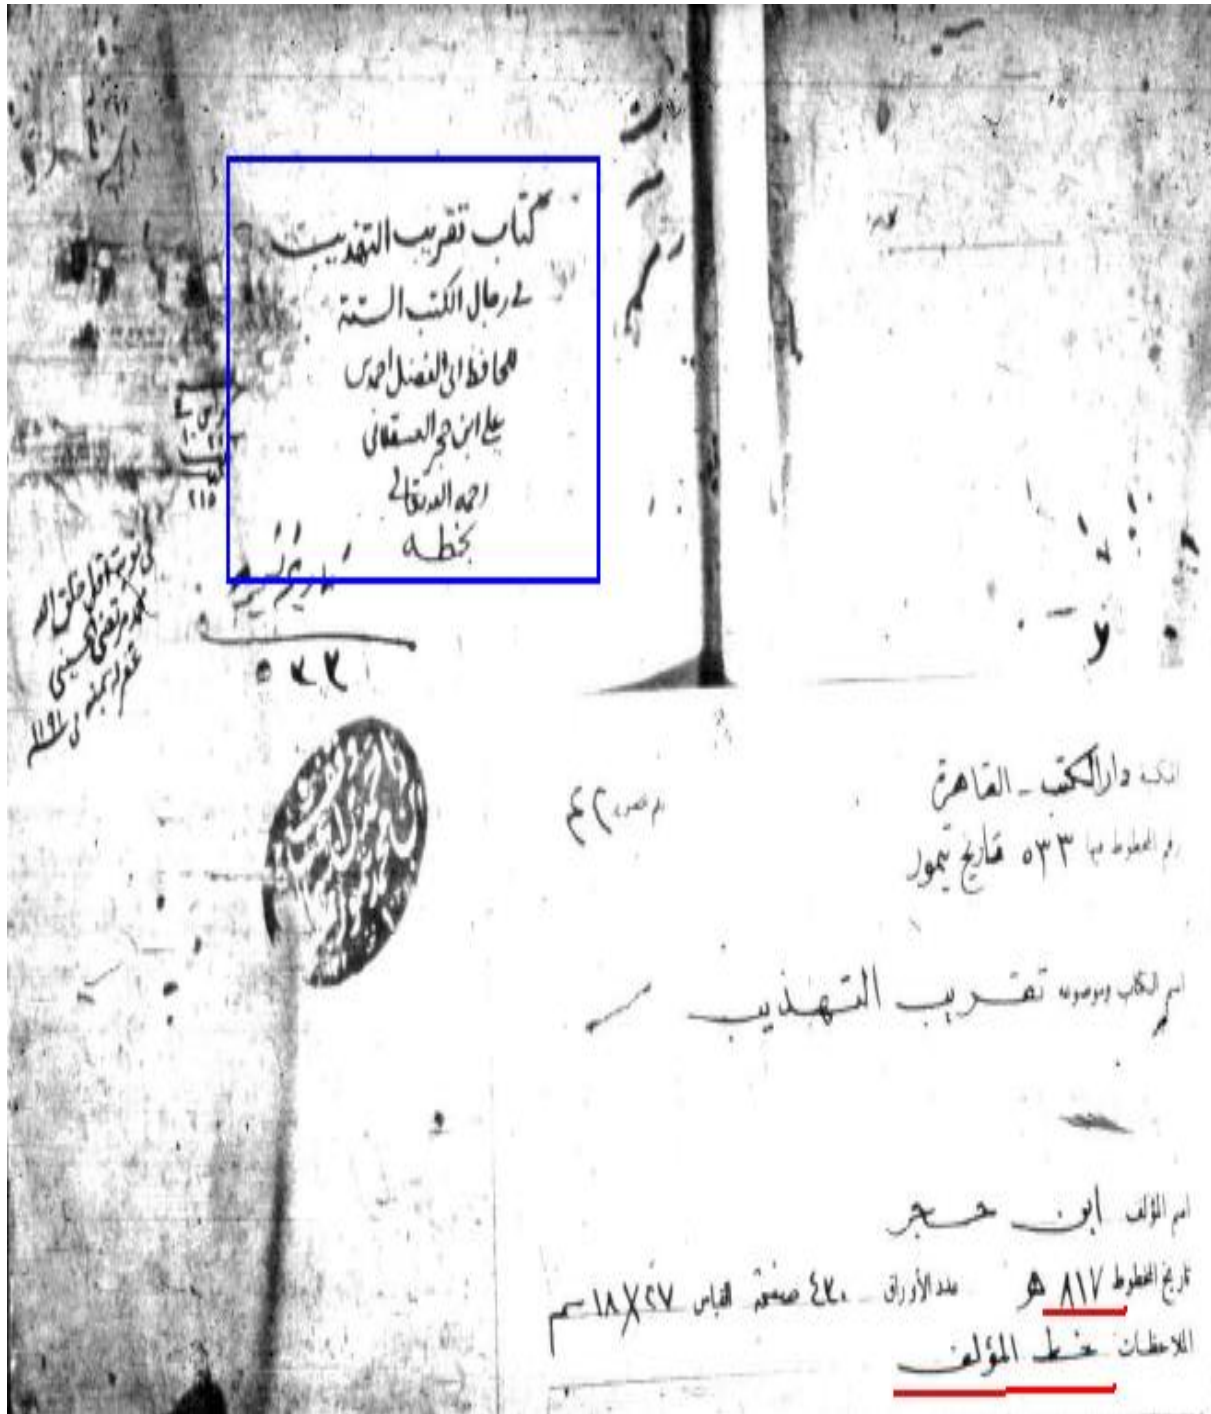 كتاب تقريب التهذيب
في رجال الكتب الستة
للحافظ ابي الفضل احمد بن
علي ابن حجر العسقلاني
رحمه الله تعالى
بخطه
٢١٥
في نوبة اقل خلق الله
محمد مرتضى الحسيني
غفر له بمنه
في سنة ١١٩١
تاريخ تيمور
٥٣٣
المكتبة دار الكتب - القاهرة
رقم المخطوط فيها ٥٣٣ تاريخ تيمور
اسم الكتاب وموضوعه تقريب التهذيب
اسم المؤلف ابن حجر
تاريخ المخطوط ٨١٧ هـ عدد الأوراق ٤٣٠ صفحة القياس ٢٧ X ١٨ سم
الملاحظات بخط المؤلف